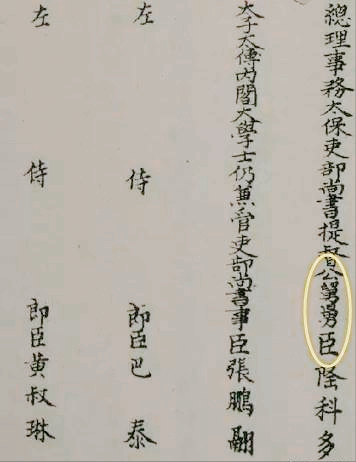 總理事務太保吏部尚書提督公舅舅臣隆科多
太子太傅內閣大學士仍兼管吏部尚書事臣張鵬翮
左侍郎臣巴泰
左侍郎臣黃叔琳